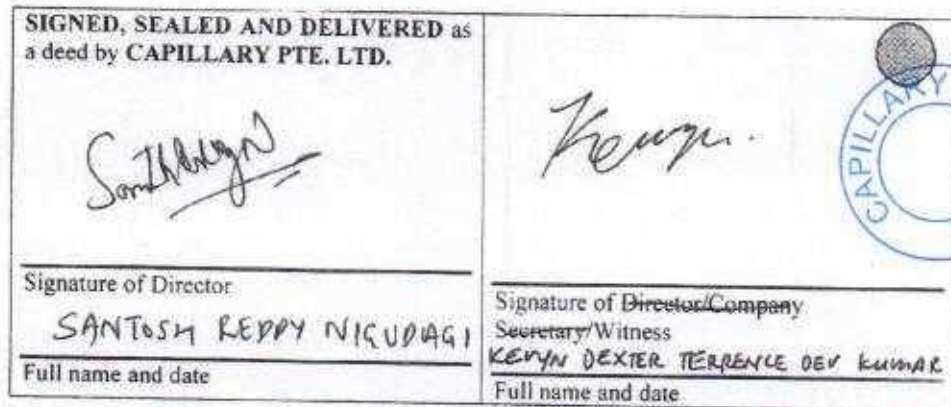 SIGNED, SEALED AND DELIVERED as
a deed by CAPILLARY PTE. LTD.
Signature of Director
SANTOSH REDDY NIGUDAGI
Full name and date
Kevyn.
CAPILLARY
Signature of Director/Company
Secretary/Witness
KEVYN DEXTER TERRENCE DEV KUMAR
Full name and date